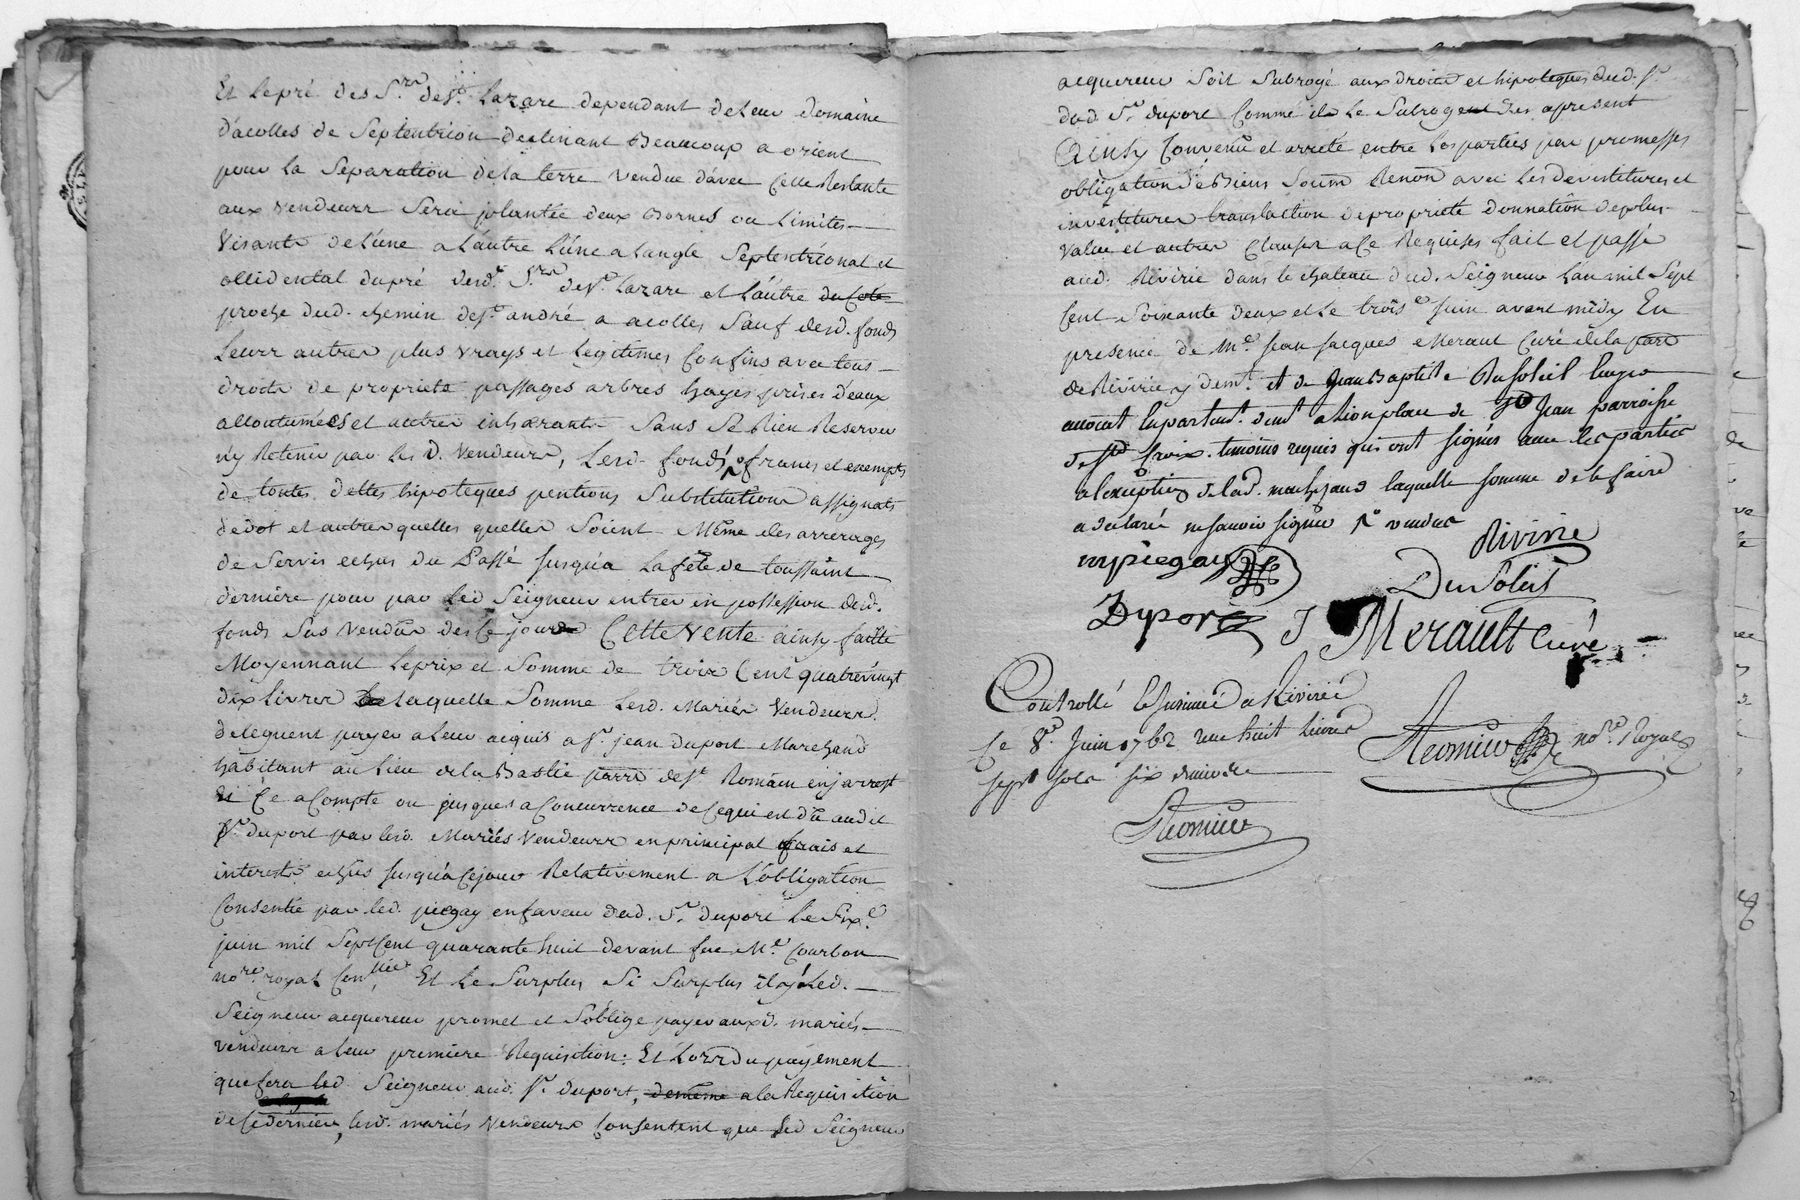 Et le pré des Srs de St. Lazare dependant de Leur domaine
d'acolles de Septentrion declinant Beaucoup a orient
pour la Separation de la terre vendue d'avec Celle Restante
aux vendeurs Sera plantée deux Bornes ou Limites
Visants de L'une a L'autre L'une a langle Septentrional et
occidental dupré desd. Srs de St. Lazare et L'autre du Coté
proche dud. chemin de St. andré a acolles Sauf desd. fonds
Leurs autres plus vrays et Legitimes Confins avec tous
droits de proprieté passages arbres hayes prises d'eaux
accoutumées et autres inhærants Sans Se Rien Reserver
n'y Retenir par Les d. Vendeurs, Lesd. fonds francs et exempts
de toutes dettes hipoteques pentions Substitutions assignats
de dot et autres quelles quelles Soient Même des arrerages
de Servis echus du Passé Jusqu'a La fête de toussaint
derniere pour par Led Seigneur entrer en possession desd.
fonds Sus Vendus des Ce jourd Cette Vente ainsy faitte
Moyennant Le prix et Somme de trois Cent quatrevingt
dix Livres laquelle Somme Lesd. Mariés Vendeurs
deleguent payer a Leur acquis a Sr. jean duport Marchand
habitant au Lieu de la Bastie parre de St Romain enjarrest
Et Ce a Compte ou jusques a Concurrence de Ce qui est dû audit
Sr. duport par lesd. Mariés Vendeurs en principal frais et
interests echus Jusqu'a Ce jour Relativement a L'obligation
Consentie par led. piegay en faveur dud. Sr. duport Le Sixe.
juin mil SeptCent quarante huit devant feu Me. Courbon
nore. royal Et Le Surplus Si Surplus il y a Led.
Seigneur acquereur promet et S'oblige payer aux d. mariés
vendeurs a Leur premiere Requisition. Et Lors du payement
que fera led. Seigneur aud. Sr. duport, demême a la Requisition
de Ce dernier, lesd. mariés Vendeurs Consentent que Led Seigneur
acquereur Soit Subrogé aux droits et hipoteques dud. Sr.
dud. Sr. duport Comme ils Le Subrogent des apresent
Ainsy Convenu et arreté entre les parties par promesses
obligation de Biens Soum Renon avec Les devestitures et
investitures translaction de proprieté donnation de plus
value et autres Clauses a Ce Requises fait et passé
aud. Riverie dans le chateau dud. Seigneur Lan mil Sept
Cent Soixante deux et Le trois.e Juin avant midy En
presence de Me. Jean Jacques Meraut Curé de la parre
de Riverie y demt. et de Jean Baptiste Dusoleil
avocat en parlemt. demt a Lion place de St Jean parroisse
de Ste Croix. temoins requis qui ont signés avec les parties
a lexception de lad. laquelle somme de le faire
a declaré ne savoir signer
mpiegay Riverie
Dusoleil
Duport J Merault Curé
Controllé a Riverie
Le 8e. Juin 1762 reçu huit Livres
sept sols six deniers
nore. Royal